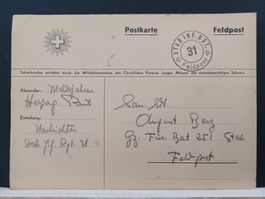 Postkarte Feldpost
STAB INF. RGT.
31
Feldpost
Schreibstube errichtet durch die Militärkommission der Christlichen Vereine Junger Männer der deutschsprachigen Schweiz
Absender: Meldefahrer
Herzog
Einteilung:
Nachrichten
Stab Inf. Rgt. 31
San. Sdt
August Berg
Gz. Füs. Bat 251 Stab
Feldpost